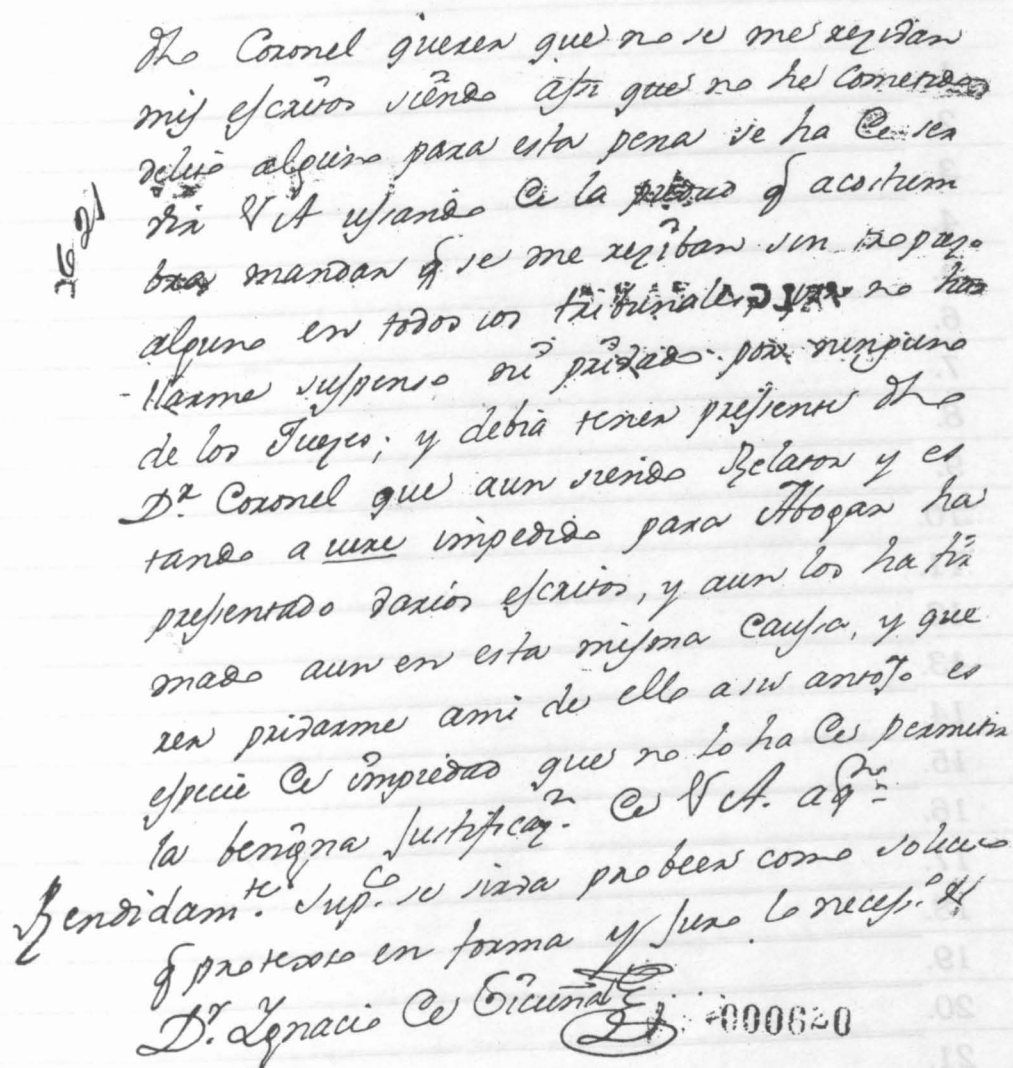 dho Coronel querer que no se me rezivan
mis escritos siendo assi que no he cometido
delito alguno para esta pena se ha de ser
vir V A usando de la piedad q̃ acostum
bra, mandar q̃ se me reziban sin reparo
alguno en todos los tribunales, no ha
llarme suspenso, ni privado por ninguno
de los Juezes; y debia tener pressente dho
D.r Coronel que aun siendo Relator y es
tando a iure impedido para Abogar ha
pressentado varios escritos, y aun los ha fir
mado aun en esta misma caussa, y que
rer privarme ami de ello a su antojo es
especie de impiedad que no lo ha de permitir
la benigna Justificaz.n de V A. a q.n
Rendidam.te sup.co se sirva probeer como solicito
q̃ protexto en forma y Juro lo necess.o &
D.r Ygnacio de Vicuña
16 21
21
000620
6.
7.
8.
13.
14.
15.
16.
17.
19.
20.
21.